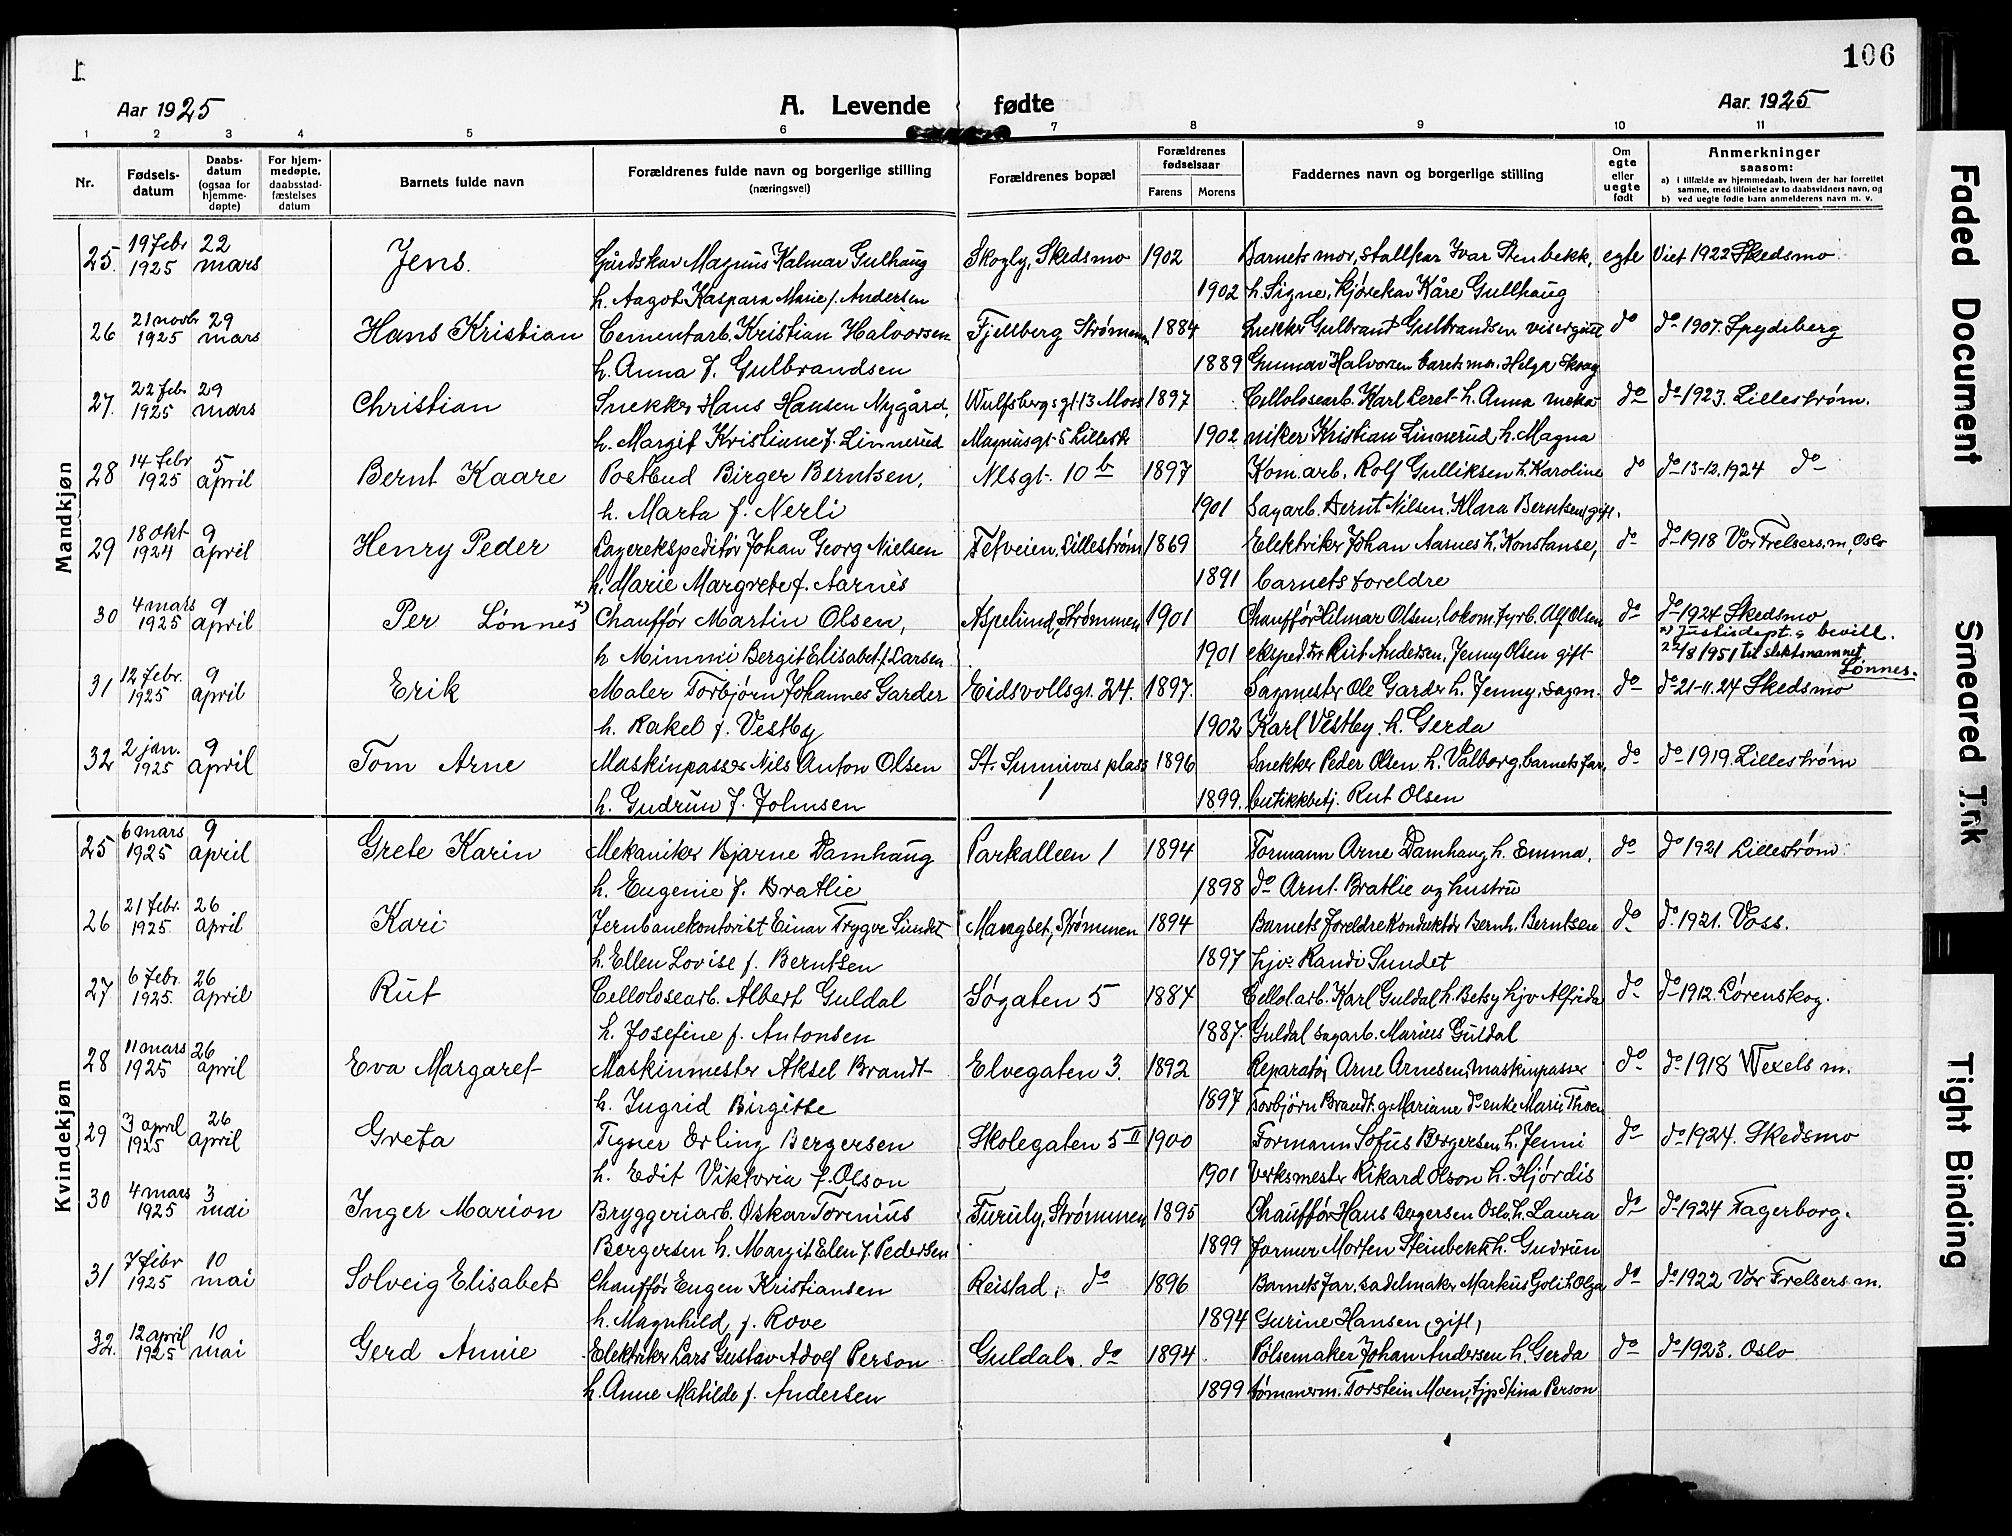 106
Aar 1925
A. Levende fødte
Aar 1925
1 2 3 4 5 6 7 8 9 10 11
Nr.
Fødsels-
datum
Daabs-
datum
(ogsaa for
hjemme-
døpte)
For hjem-
medøpte,
daabsstad-
fæstelses
datum
Barnets fulde navn
Forældrenes fulde navn og borgerlige stilling
(næringsvei)
Forældrenes bopæl
Forældrenes
fødselsaar
Farens Morens
Faddernes navn og borgerlige stilling
Om
egte
eller
uegte
født
Anmerkninger
saasom:
a) i tilfælde av hjemmedaab, hvem der har forrettet
samme, med tilføielse av to daabsvidners navn, og
b) ved uegte fødte barn anmelderens navn m. v.
Mandkjøn
25. 19 febr 1925 22 mars Jens. Gårdskar Magnus Kalmar Gulhaug Skogly, Skedsmo 1902 Barnets mor, stallkar Ivar Stenbekk, egte Viet 1922 Skedsmo
h. Aagot Kaspara Marie f. Andersen 1902 h. Signe, kjørekar Kåre Gullhaug
26 21 novbr 1925 29 mars Hans Kristian Cementarb. Kristian Halvorsen Fjellberg Strømmen 1884 Snekker Gulbrant Gulbrandsen visergutt do do 1907. Spydeberg
h. Anna f. Gulbrandsen 1889 Gunnar Halvorsen barets mor. Helga Skaug
27. 22 febr 1925 29 mars Christian Snekker Hans Hansen Nygård, Wulfsbergsgt. 13 Moss 1897 Cellolosearb. Karl Leret h. Anna meka- do do 1923. Lillestrøm.
h. Margit Kristiane f. Linnerud Magnusgt. 5 Lillestr 1902 niker Kristian Linnerud, h. Magna
28 14 febr 1925 5 april Bernt Kaare Postbud Birger Berntsen, Nlsgt. 10 b 1897 Kom.arb. Rolf Gulliksen h. Karoline do do 13-12.1924 do
h. Marta f. Nerli 1901 Sagarb. Bernt Nilsen. Klara Berntsen, gift.
29 18 okt 1924 9 april Henry Peder Lagerekspeditør Johan Georg Nielsen Tetveien, Lillestrøm 1869 Elektriker Johan Aarnes h. Konstanse, do do 1918 Vor Frelsers m, Oslo
h. Marie Margrete f. Aarnes 1891 barnets foreldre
30 4 mars 1925 9 april Per Lønnes x) Chauffør Martin Olsen, Aspelund, Strømmen 1901 Chauffør Hilmar Olsen, lokom.fyrb. Alf Olsen do do 1924 Skedsmo
x) Justisdept.s bevill.
h. Mimmi Bergit Elisabet f. Larsen 1901 eksped.tr Rut Andersen, Jenny Olsen gift 22/8 1951 til slektsnamnet
Lønnes.
31 12 febr. 1925 9 april Erik Maler Torbjørn Johannes Garder Eidsvollsgt. 24. 1897. Sagmester Ole Garder h. Jenny, sagm. do do 21-11.24 Skedsmo
h. Rakel f. Vestby 1902 Karl Vestby h. Gerda
32 2 jan. 1925 9 april Tom Arne Maskinpasser Nils Anton Olsen St. Sunnivas plass 1896 Snekker Peder Olsen h. Valborg, barnets far, do do 1919. Lillestrøm
h. Gudrun f. Johnsen 1899. butikkbetj. Rut Olsen
Kvindekjøn
25 6 mars 1925 9 april Grete Karin Mekaniker Bjarne Damhaug Parkalleen 1 1894 Formann Arne Damhaug h. Emma, do do 1921 Lillestrøm
h. Eugenie f. Bratlie 1898 do Arnt Bratlie og hustru
26 21 febr. 1925 26 april Kari Jernbanekontorist Einar Trygve Sundet Mangset, Strømmen 1894 Barnets foreldre Konduktør Bernh. Berntsen do do 1921. Voss.
h. Ellen Lovise f. Berntsen 1897 hjv: Randi Sundet
27 6 febr. 1925 26 april Rut Cellolosearb. Albert Guldal Søgaten 5 1884 Cellol.arb. Karl Guldal h. Betsy hjv Alfrida do do 1912. Lørenskog.
h. Josefine f. Antonsen 1887. Guldal sagarb. Marius Guldal
28 11 mars 1925 26 april Eva Margaret Maskinmester Aksel Brandt Elvegaten 3. 1892 Reparatør Arne Arnesen, maskinpasser do do 1918 Wexels m.
h. Ingrid Birgitte 1897 Torbjørn Brandt g. Mariane do enke Marie Thoen
29 3 april 1925 26 april Greta Tegner Erling Bergersen Skolegaten 5 II 1900 Formann Sofus Bergersen h. Jenni do do 1924. Skedsmo
h. Edit Viktoria f. Olson 1901 Verksmester Rikard Olson h. Hjørdis
30 4 mars 1925 3 mai Inger Marion Bryggeriarb. Oskar Torenius Furuly, Strømmen 1895 Chauffør Hans Bergersen Oslo, h. Laura do do 1924 Fagerborg.
Bergersen h. Margit Elen f. Pedersen 1899 farmer Morten Steinbekk h. Gudrun
31 7 febr 1925 10 mai Solveig Elisabet Chauffør Eugen Kristiansen Reistad, do 1896 Barnets far, sadelmaker Markus Goli h. Olga do do 1922 Vor Frelsers m.
h. Magnhild f. Rove 1894 Gurine Hansen, gift,
32. 12 april 1925 10 mai Gerd Annie Elektriker Lars Gustav Adolf Person Guldal. do 1894 Pølsemaker Johan Andersen h. Gerda do do 1923. Oslo
h. Anne Matilde f. Andersen 1899 tømmerm. Torstein Moen, tjp Stina Person
Faded Document
Smeared Ink
Tight Binding